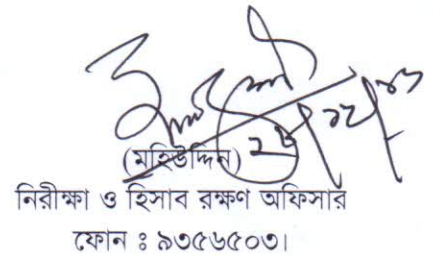 (মহিউদ্দিন)
নিরীক্ষা ও হিসাব রক্ষণ অফিসার
ফোন ঃ ৯৩৫৬৫০৩।